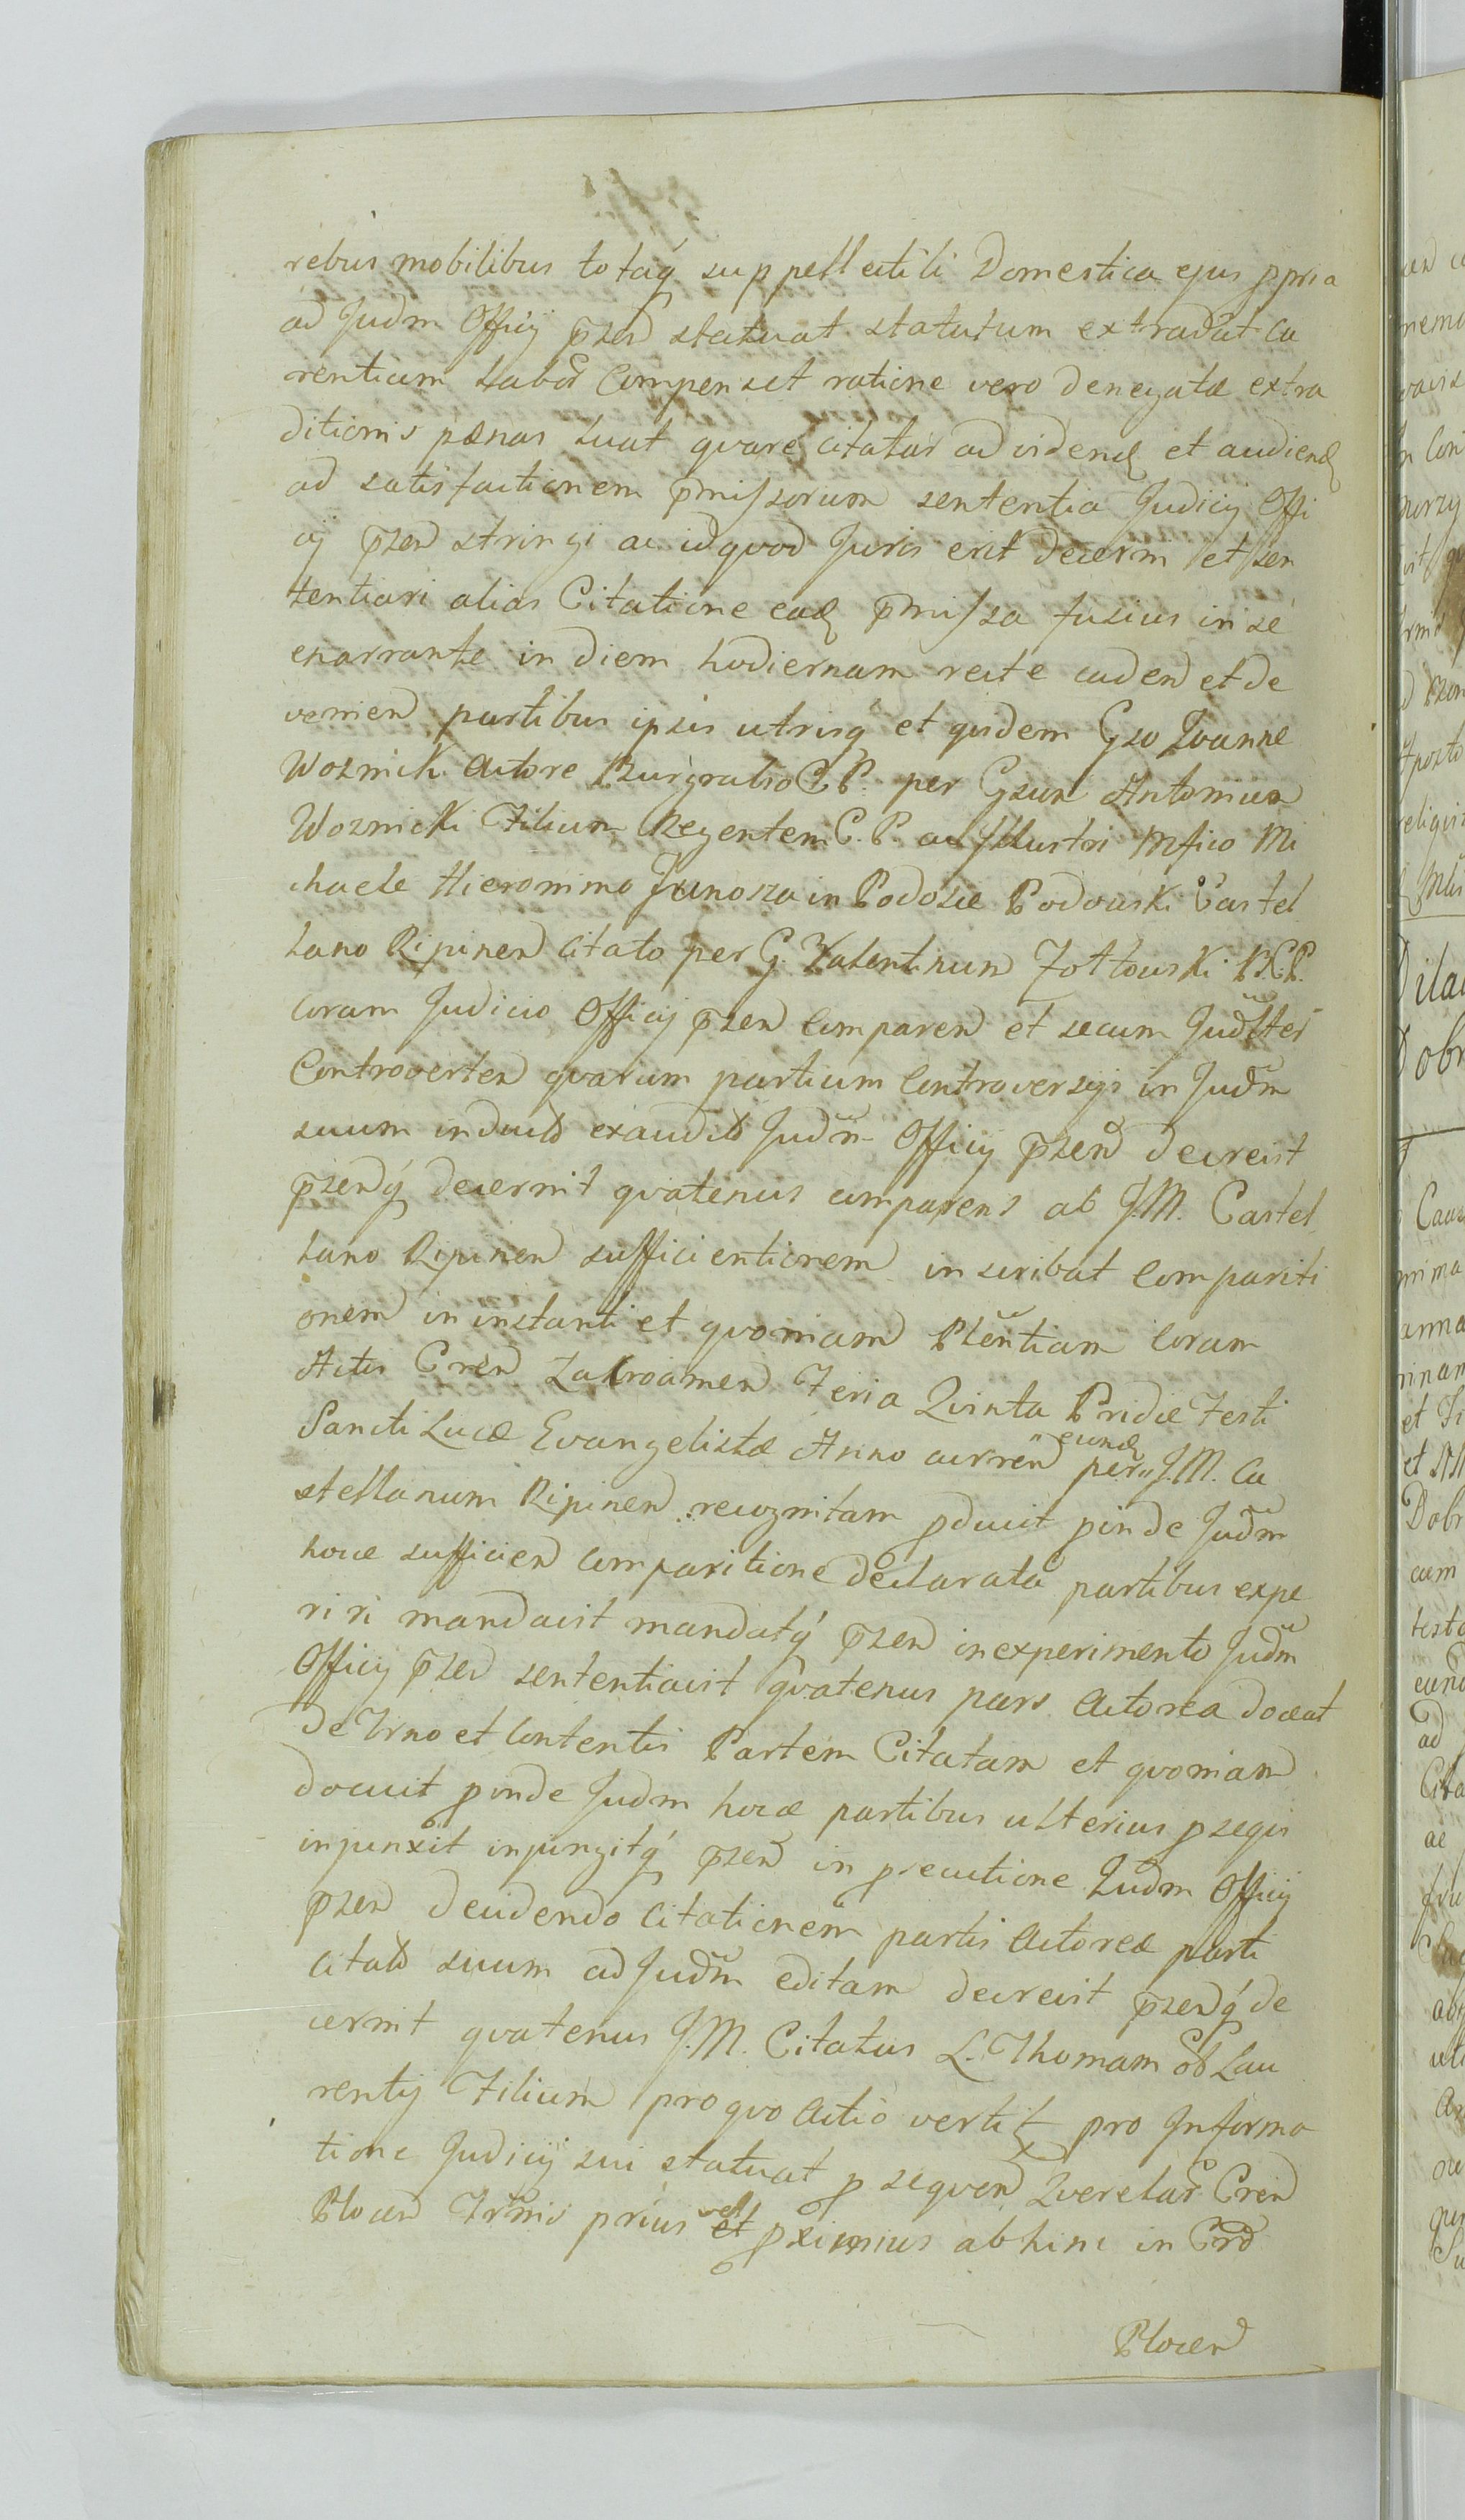 rebus mobilibus totaq́ suppellectili Domestica ejus ꝑpria
ad Judm Officÿ p̄sen statuat statutum extradat ca
rentiam Labor̃ Compenset ratione vero denegatæ extra
ditionis pænas luat qvare citatur ad vidend et audiend
ad satisfactionem p̄missorum sententia Judicij Offi
cÿ p̄sen stringi ac id qvod Juris erit decerni et sen
tentiari alias Citatione ead p̄missa fusius in se
enarrante in diem hodiernam recte caden et de
venien partibus ipsis utrisq́ et qvidem Gso Joanne
Woznicki Actore Burgrabio C. P. per Gsum Antonium
Woznicki Filium Regentem C. P. ac Illustri Mfico Mi
chaele Hieronimo Junosza in Podosie Podoski Castel
lano Ripinen citato per G. Valentinum Zołtowski B.C.P.
coram Judicio Officij p̄sen Comparen et secum Judlter
Controverten qvarum partium Controversijs in Judm̃
suum induct exaudit Judm̃ Officij p̄sen decrevit
p̄senq́ decernit qvatenus comparens ab J.M. Castel
lano Ripinen sufficientiorem inscribat compariti
onem in instanti et qvoniam Pleñtiam coram
Actis Cren Zakroamen Feria Qvinta Pridie Festi
Sancti Lucæ Evangelistæ Anno curren per eund J.M. Ca
stellanum Ripinen recognitam ꝑduxit ꝑinde Judm̃
hocce sufficien comparitione declarata partibus expe
riri mandavit mandatq́ p̄sen in experimento Judm̃
Officij p̄sen sententiavit qvatenus pars Actorea doceat
de Trno et Contentis Partem Citatam et qvoniam
docuit ꝑinde Judm hocce partibus ulterius ꝑseqvi
injunxit injungitq́ p̄sen in ꝑsecutione Judm Officij
p̄sen decidendo Citationem partis Actoreæ parti
citatæ suum ad Judm̃ editam decrevit p̄senq́ de
cernit qvatenus J.M. Citatus L. Thomam olĩ Lau
rentij Filium pro qvo Actio vertit pro Informa
tione Judicij sui statuat ꝑ seqven Qverelar̃ Cren
Plocen Trm̃is prius vel ꝑximius abhinc in Crd
Plocen